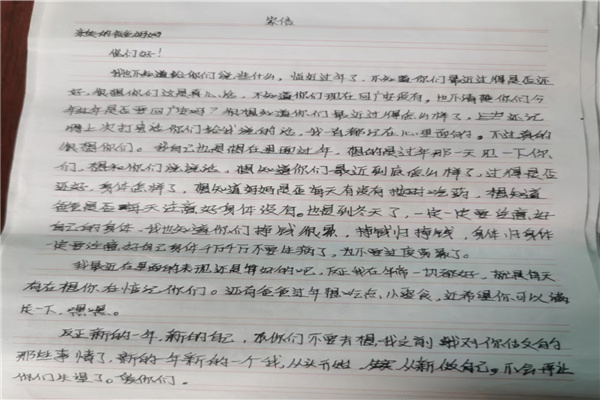 家信
亲爱的爸爸妈妈
你们好！
我也不知道给你们说些什么，临近过年了，不知道你们最近过得是否还
好。很想你们这是真心话，不知道你们现在回广安没有。也不清楚你们今
年过年是否要回广安吗？很想知道你们最近过得怎么样了，还记
得上次打电话你们给我说的话，我言都记在心里面的。不过真的
很想你们。好自己也是想在里面过年，想的是过年那一天见一下你
们，想和你们说说话，想知道你们最近到底怎么样了，过得是否
还好，身体怎样了，想知道妈妈是否每天有没有按时吃药，想知道
爸爸是否每天注意好身体没有。也是到冬天了，一定一定要注意好
自己的身体。我也知道你们挣钱很累，挣钱归挣钱，身体归身体
一定要注意好自己身体千万千万不要生病了，也不要过度劳累了。
我最近在里面的表现还是算好的吧，反正我在年前一切都好，就是每天
有在想你在惦记你们。还有爸爸过年想吃点小零食，还希望你可以满
足一下，嘿嘿。
反正新的一年，新的自己，你们不要去想我之前我对你们做的
那些事情了，新的一年新的一个我，从头开始，从新做自己，不会再让
你们失望了。爱你们。